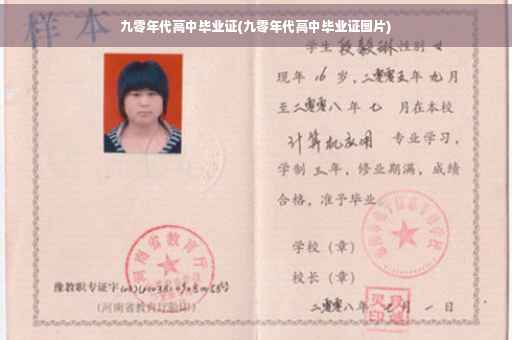 九零年代高中毕业证(九零年代高中毕业证图片)
样本
学生 段毅琳 性别 女
现年 16 岁，二零零五年 九 月
至二零零八年 七 月在本校
计算机应用 专业学习，
学制 三 年，修业期满，成绩
合格，准予毕业
学校（章）
校长（章）
二零零八年 七 月 一 日
河南省教育厅
豫教职专证字
（河南省教育厅验印）